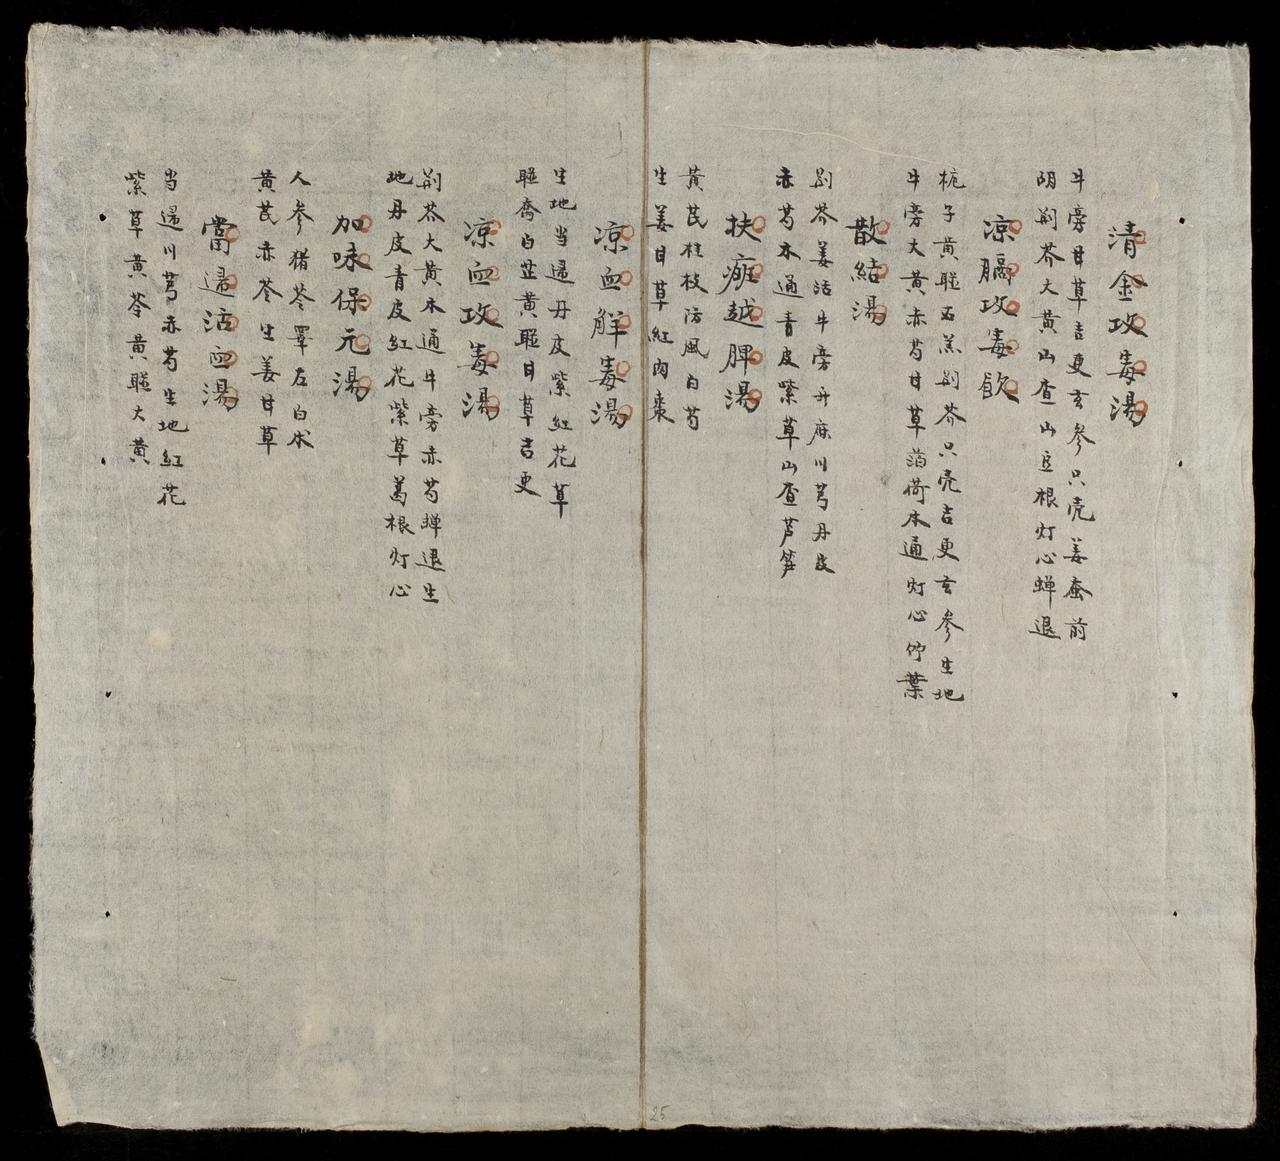 清金攻毒湯
牛旁甘草吉更玄參只壳姜蚕前
胡荆芥大黄山查山豆根灯心蝉退
凉膈攻毒飲
杭子黄聯石羔荆芥只壳吉更玄參生地
牛旁大黄赤芍甘草泊荷木通灯心竹葉
散結湯
荆芥姜活牛旁升麻川芎丹皮
赤芍木通青皮紫草山查芦笋
扶瘧越脾湯
黄芪桂枝防風白芍
生姜甘草紅肉棗
凉血觧毒湯
生地当归丹皮紫紅花草
聯喬白芷黄聯甘草吉更
凉血攻毒湯
荆芥大黄木通牛旁赤芍蝉退生
地丹皮青皮紅花紫草葛根灯心
加味保元湯
人參猪苓澤左白朮
黄芪赤苓生姜甘草
當归活血湯
当归川芎赤芍生地紅花
紫草黄芩黄聯大黄
25